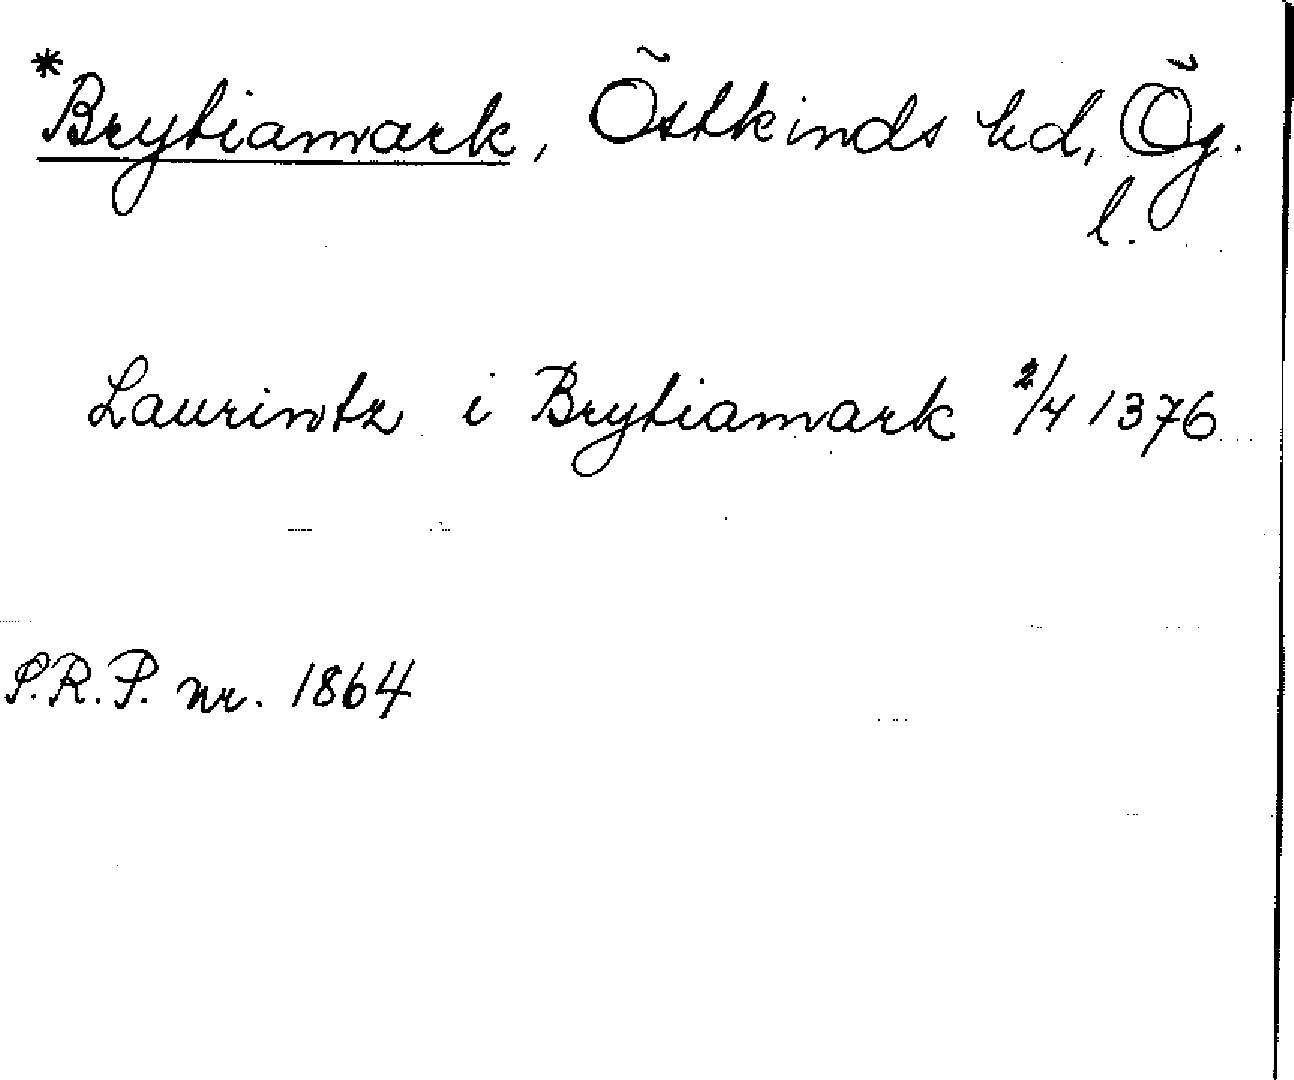 *Brytiamark, Östkinds hd, Ög.
l.
Laurintz i Brytiamark 2/4 1376
S.R.P. nr. 1864